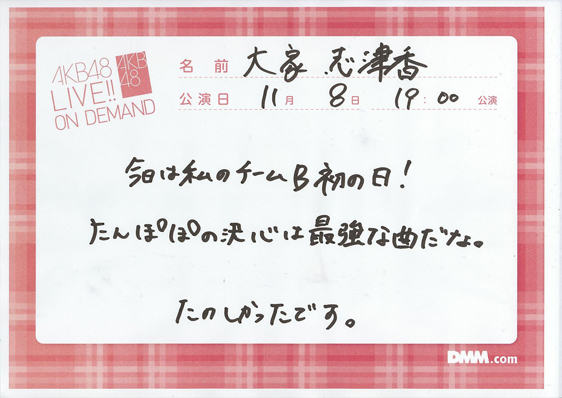 AKB48
LIVE!!
ON DEMAND
AKB
48
名前 大家 志津香
公演日 11月 8日 19:00 公演
今日は私のチームB初の日!
たんぽぽの決心は最強な曲だな。
たのしかったです。
DMM.com